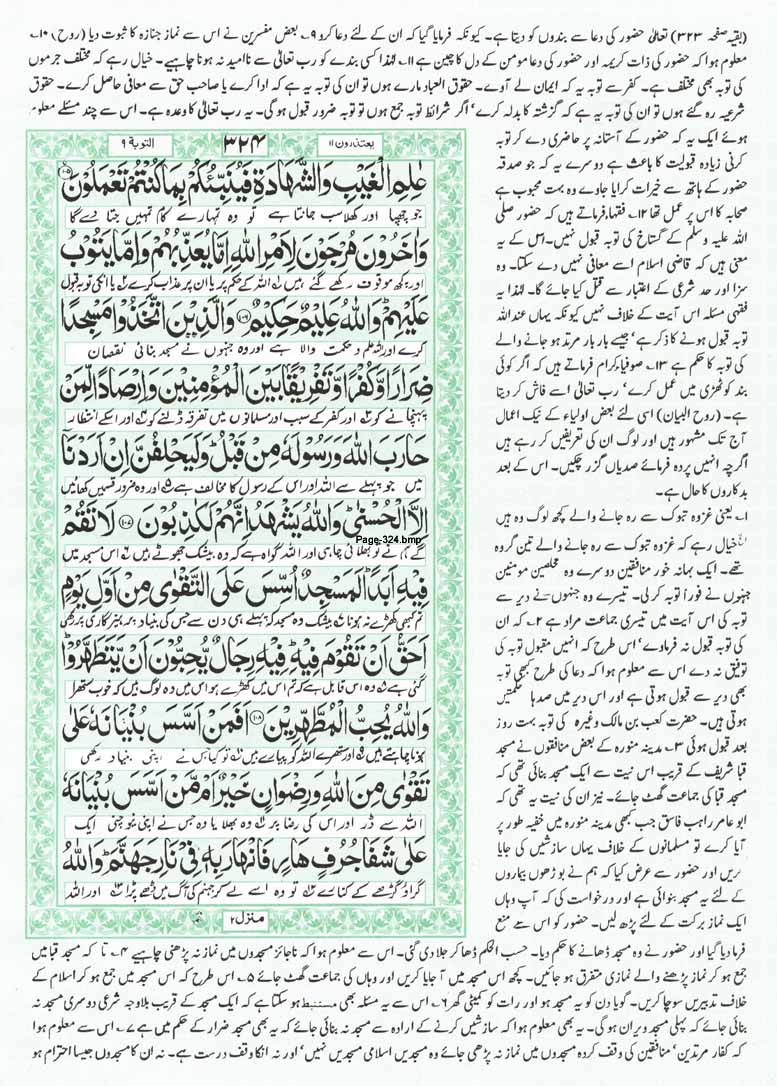 (بقیہ صفحہ ۳۲۳) تعالیٰ حضور کی دعا سے بندوں کو دیتا ہے۔ کیونکہ فرمایا گیا کہ ان کے لئے دعا کرو ۹؎ بعض مفسرین نے اس سے نماز جنازہ کا ثبوت دیا (روح) ۱۰؎
معلوم ہوا کہ حضور کی ذات کریمہ اور حضور کی دعا مومن کے دل کا چین ہے ۱۱؎ لہٰذا کسی بندے کو رب تعالیٰ سے ناامید نہ ہونا چاہیے۔ خیال رہے کہ مختلف جرموں
کی توبہ بھی مختلف ہے۔ کفر سے توبہ یہ کہ ایمان لے آوے۔ حقوق العباد مارے ہوں تو ان کی توبہ یہ ہے کہ ادا کرے یا صاحب حق سے معافی حاصل کرے۔ حقوق
شرعیہ رہ گئے ہوں تو ان کی توبہ یہ ہے کہ گزشتہ کا بدلہ کرے، اگر شرائط توبہ جمع ہوں تو توبہ ضرور قبول ہوگی۔ یہ رب تعالیٰ کا وعدہ ہے۔ اس سے چند مسئلے معلوم
ہوئے ایک یہ کہ حضور کے آستانہ پر حاضری دے کر توبہ
کرنی زیادہ قبولیت کا باعث ہے دوسرے یہ کہ جو صدقہ
حضور کے ہاتھ سے خیرات کرایا جاوے وہ بہت محبوب ہے
صحابہ کا اس پر عمل تھا ۱۲؎ فقہا فرماتے ہیں کہ حضور صلی
اللہ علیہ وسلم کے گستاخ کی توبہ قبول نہیں۔ اس کے یہ
معنی ہیں کہ قاضی اسلام اسے معافی نہیں دے سکتا۔ وہ
سزا اور حد شرعی کے اعتبار سے قتل کیا جائے گا۔ لہٰذا یہ
فقہی مسئلہ اس آیت کے خلاف نہیں کیونکہ یہاں عنداللہ
توبہ قبول ہونے کا ذکر ہے، جیسے بار بار مرتد ہو جانے والے
کی توبہ کا حکم ہے ۱۳؎ صوفیاء کرام فرماتے ہیں کہ اگر کوئی
بند کوٹھڑی میں عمل کرے، رب تعالیٰ اسے فاش کر دیتا
ہے۔ (روح البیان) اسی لئے بعض اولیاء کے نیک اعمال
آج تک مشہور ہیں اور لوگ ان کی تعریفیں کر رہے ہیں
اگرچہ انہیں پردہ فرمائے صدیاں گزر چکیں۔ اس کے بعد
بدکاروں کا حال ہے۔
۱؎ یعنی غزوہ تبوک سے رہ جانے والے کچھ لوگ وہ ہیں
خیال رہے کہ غزوہ تبوک سے رہ جانے والے تین گروہ
تھے۔ ایک بہانہ خور منافقین دوسرے وہ مخلصین مومنین
جنہوں نے فوراً توبہ کرلی۔ تیسرے وہ جنہوں نے دیر سے
توبہ کی اس آیت میں تیسری جماعت مراد ہے ۲؎ کہ ان
کی توبہ قبول نہ فرماوے، اس طرح کہ انہیں مقبول توبہ کی
توفیق نہ دے اس سے معلوم ہوا کہ دعا کی طرح کبھی توبہ
بھی دیر سے قبول ہوتی ہے اور اس دیر میں صدہا حکمتیں
ہوتی ہیں۔ حضرت کعب بن مالک وغیرہ کی توبہ بہت روز
بعد قبول ہوئی ۳؎ مدینہ منورہ کے بعض منافقوں نے مسجد
قبا شریف کے قریب اس نیت سے ایک مسجد بنائی تھی کہ
مسجد قبا کی جماعت گھٹ جائے۔ نیز ان کی نیت یہ تھی کہ
ابو عامر راہب فاسق جب کبھی مدینہ منورہ میں خفیہ طور پر
آیا کرے تو مسلمانوں کے خلاف یہاں سازشیں کی جایا
کریں اور حضور سے عرض کیا کہ ہم نے بوڑھوں بیماروں
کے لئے یہ مسجد بنوائی ہے اور درخواست کی کہ آپ وہاں
ایک نماز برکت کے لئے پڑھ لیں۔ حضور کو اس سے منع
یعتذرون ۱۱
۳۲۴
التوبۃ ۹
عٰلِمِ الْغَیْبِ وَالشَّهَادَةِ فَیُنَبِّئُكُمْ بِمَا كُنْتُمْ تَعْمَلُوْنَ ۝۱۰۵
جو چھپا اور کھلا سب جانتا ہے تو وہ تمہارے کام تمہیں جتا دے گا
وَاٰخَرُوْنَ مُرْجَوْنَ لِاَمْرِ اللّٰهِ اِمَّا یُعَذِّبُهُمْ وَاِمَّا یَتُوْبُ
اور کچھ موقوف رکھے گئے ہیں اللہ کے حکم پر یا ان پر عذاب کرے یا ان کی توبہ قبول
عَلَیْهِمْ ؕ وَاللّٰهُ عَلِیْمٌ حَكِیْمٌ ۝۱۰۶ وَالَّذِیْنَ اتَّخَذُوْا مَسْجِدًا
کرے اور اللہ علم و حکمت والا ہے اور وہ جنہوں نے مسجد بنائی نقصان
ضِرَارًا وَّكُفْرًا وَّتَفْرِیْقًۢا بَیْنَ الْمُؤْمِنِیْنَ وَاِرْصَادًا لِّمَنْ
پہنچانے کو اور کفر کے سبب اور مسلمانوں میں تفرقہ ڈالنے کو اور اسکے انتظار
حَارَبَ اللّٰهَ وَرَسُوْلَهٗ مِنْ قَبْلُ ؕ وَلَیَحْلِفُنَّ اِنْ اَرَدْنَاۤ
میں جو پہلے سے اللہ اور اس کے رسول کا مخالف ہے اور وہ ضرور قسمیں کھائیں
اِلَّا الْحُسْنٰی ؕ وَاللّٰهُ یَشْهَدُ اِنَّهُمْ لَكٰذِبُوْنَ ۝۱۰۷ لَا تَقُمْ
Page-324.bmp
گے ہم نے تو بھلائی چاہی اور اللہ گواہ ہے کہ وہ بیشک جھوٹے ہیں اس مسجد میں
فِیْهِ اَبَدًا ؕ لَمَسْجِدٌ اُسِّسَ عَلَی التَّقْوٰی مِنْ اَوَّلِ یَوْمٍ
تم کبھی کھڑے نہ ہونا بیشک وہ مسجد کہ پہلے ہی دن سے جس کی بنیاد پرہیزگاری پر رکھی
اَحَقُّ اَنْ تَقُوْمَ فِیْهِ ؕ فِیْهِ رِجَالٌ یُّحِبُّوْنَ اَنْ یَّتَطَهَّرُوْا ؕ
گئی ہے وہ اس قابل ہے کہ تم اس میں کھڑے ہو اس میں وہ لوگ ہیں کہ خوب ستھرا
وَاللّٰهُ یُحِبُّ الْمُطَّهِّرِیْنَ ۝۱۰۸ اَفَمَنْ اَسَّسَ بُنْیَانَهٗ عَلٰی
ہونا چاہتے ہیں اور ستھرے اللہ کو پیارے ہیں تو کیا جس نے اپنی بنیاد رکھی
تَقْوٰی مِنَ اللّٰهِ وَرِضْوَانٍ خَیْرٌ اَمْ مَّنْ اَسَّسَ بُنْیَانَهٗ
اللہ سے ڈر اور اس کی رضا پر وہ بھلا یا وہ جس نے اپنی نیو چنی ایک
عَلٰی شَفَا جُرُفٍ هَارٍ فَانْهَارَ بِهٖ فِیْ نَارِ جَهَنَّمَ ؕ وَاللّٰهُ
گراؤ گڑھے کے کنارے تو وہ اسے لے کر جہنم کی آگ میں ڈھے پڑا اور اللہ
منزل ۲
فرما دیا گیا اور حضور نے وہ مسجد ڈھانے کا حکم دیا۔ حسب الحکم ڈھا کر جلا دی گئی۔ اس سے معلوم ہوا کہ ناجائز مسجدوں میں نماز نہ پڑھنی چاہیے ۴؎ تا کہ مسجد قبا میں
جمع ہو کر نماز پڑھنے والے نمازی متفرق ہو جائیں۔ کچھ اس مسجد میں آ جایا کریں اور وہاں کی جماعت گھٹ جائے ۵؎ اس طرح کہ اس مسجد میں جمع ہو کر اسلام کے
خلاف تدبیریں سوچا کریں۔ گویا دن کو یہ مسجد ہو اور رات کو کمیٹی گھر ۶؎ اس سے یہ مسئلہ بھی مستنبط ہو سکتا ہے کہ ایک مسجد کے قریب بلاوجہ شرعی دوسری مسجد نہ
بنائی جائے کہ پہلی مسجد ویران ہوگی۔ یہ بھی معلوم ہوا کہ سازشیں کرنے کے ارادہ سے مسجد نہ بنائی جائے کہ یہ بھی مسجد ضرار کے حکم میں ہے ۷؎ اس سے معلوم ہوا
کہ کفار مرتدین، منافقین کی وقف کردہ مسجدوں میں نماز نہ پڑھی جائے وہ مسجدیں اسلامی مسجدیں نہیں، اور نہ انکا وقف درست ہے۔ نہ ان کا مسجدوں جیسا احترام ہو